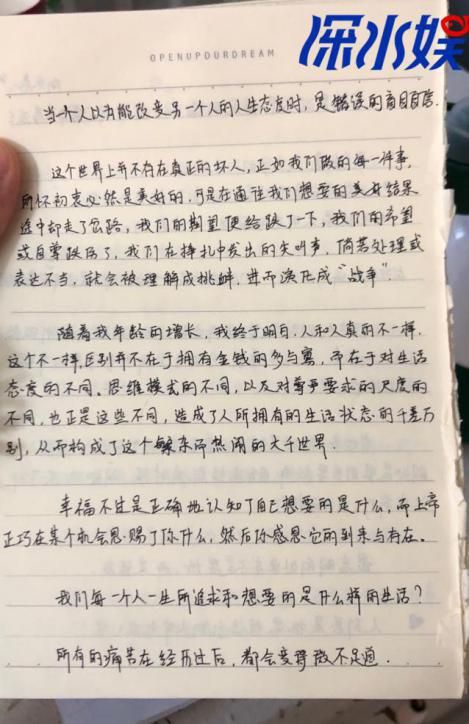 深水娱
OPENUPOURDREAM
当一个人以为能改变另一个人的人生态度时,是错误的盲目自信.
这个世界上并不存在真正的坏人,正如我们做的每一件事,
所怀初衷必然是美好的,可是在通往我们想要的美好结果
途中却走了岔路,我们的期望便给跌了一下,我们的希望
或自尊跌伤了,我们在挣扎中发出的尖叫声,倘若处理或
表达不当,就会被理解成挑衅,进而演化成“战争”.
随着我年龄的增长,我终于明白,人和人真的不一样,
这个不一样,区别并不在于拥有金钱的多与寡,而在于对生活
态度的不同、思维模式的不同,以及对尊严要求的尺度的
不同,也正是这些不同,造成了人所拥有的生活状态的千差万
别,从而构成了这个繁杂而热闹的大千世界.
幸福不过是正确地认知了自己想要的是什么,而上帝
正巧在某个机会恩赐了你什么,然后你感恩它的到来与存在。
我们每一个人一生所追求和想要的是什么样的生活?
所有的痛苦在经历过后,都会变得微不足道.